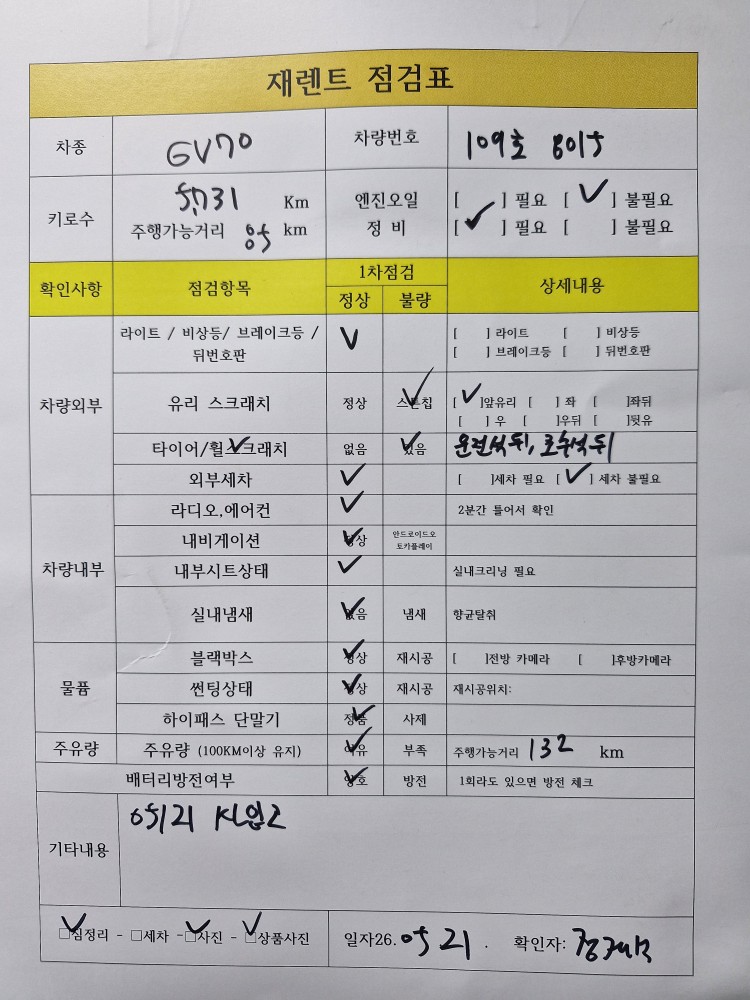 재렌트 점검표
차종 GV70 차량번호 109호 8015
키로수 5,731 Km 엔진오일 [ ] 필요 [✓] 불필요
주행가능거리 85 km 정 비 [✓] 필요 [ ] 불필요
확인사항 점검항목 1차점검 상세내용
정상 불량
차량외부 라이트 / 비상등/ 브레이크등 / ✓ [ ] 라이트 [ ] 비상등
뒤번호판 [ ] 브레이크등 [ ] 뒤번호판
유리 스크래치 정상 스톤칩 ✓ [✓]앞유리 [ ] 좌 [ ]좌뒤
[ ] 우 [ ]우뒤 [ ]뒷유
타이어/휠스크래치 ✓ 없음 있음 ✓ 운전석 뒤, 조수석 뒤
외부세차 ✓ [ ]세차 필요 [✓] 세차 불필요
차량내부 라디오,에어컨 ✓ 2분간 틀어서 확인
내비게이션 정상 ✓ 안드로이드오
토카플레이
내부시트상태 ✓ 실내크리닝 필요
실내냄새 없음 ✓ 냄새 향균탈취
물품 블랙박스 정상 ✓ 재시공 [ ]전방 카메라 [ ]후방카메라
썬팅상태 정상 ✓ 재시공 재시공위치:
하이패스 단말기 정품 ✓ 사제
주유량 주유량 (100KM이상 유지) 여유 ✓ 부족 주행가능거리 132 km
배터리방전여부 양호 ✓ 방전 1회라도 있으면 방전 체크
기타내용 05/21 KL입고
☑짐정리 - □세차 - ☑사진 - ☑상품사진 일자26. 05 21 . 확인자: